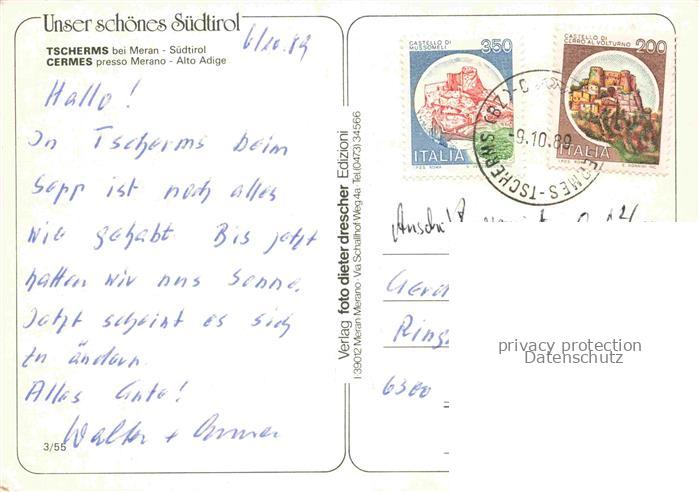 Unser schönes Südtirol
TSCHERMS bei Meran - Südtirol
CERMES presso Merano - Alto Adige
6/10.89
Hallo!
In Tscherms beim
Sepp ist noch alles
wie gehabt. Bis jetzt
hatten wir nur Sonne.
Jetzt scheint es sich
zu ändern.
Alles Gute!
Walter +
3/55
Verlag foto dieter drescher Edizioni
I-39012 Meran Merano - Via Schallhof Weg 4a Tel. (0473) 34566
CASTELLO DI
MUSSOMELI
350
ITALIA
I.P.Z.S. ROMA
CASTELLO DI
CERRO AL VOLTURNO
200
ITALIA
-9.10.89
CERMES-TSCHERMS (BZ)
Gerd
Ring
6300
privacy protection
Datenschutz